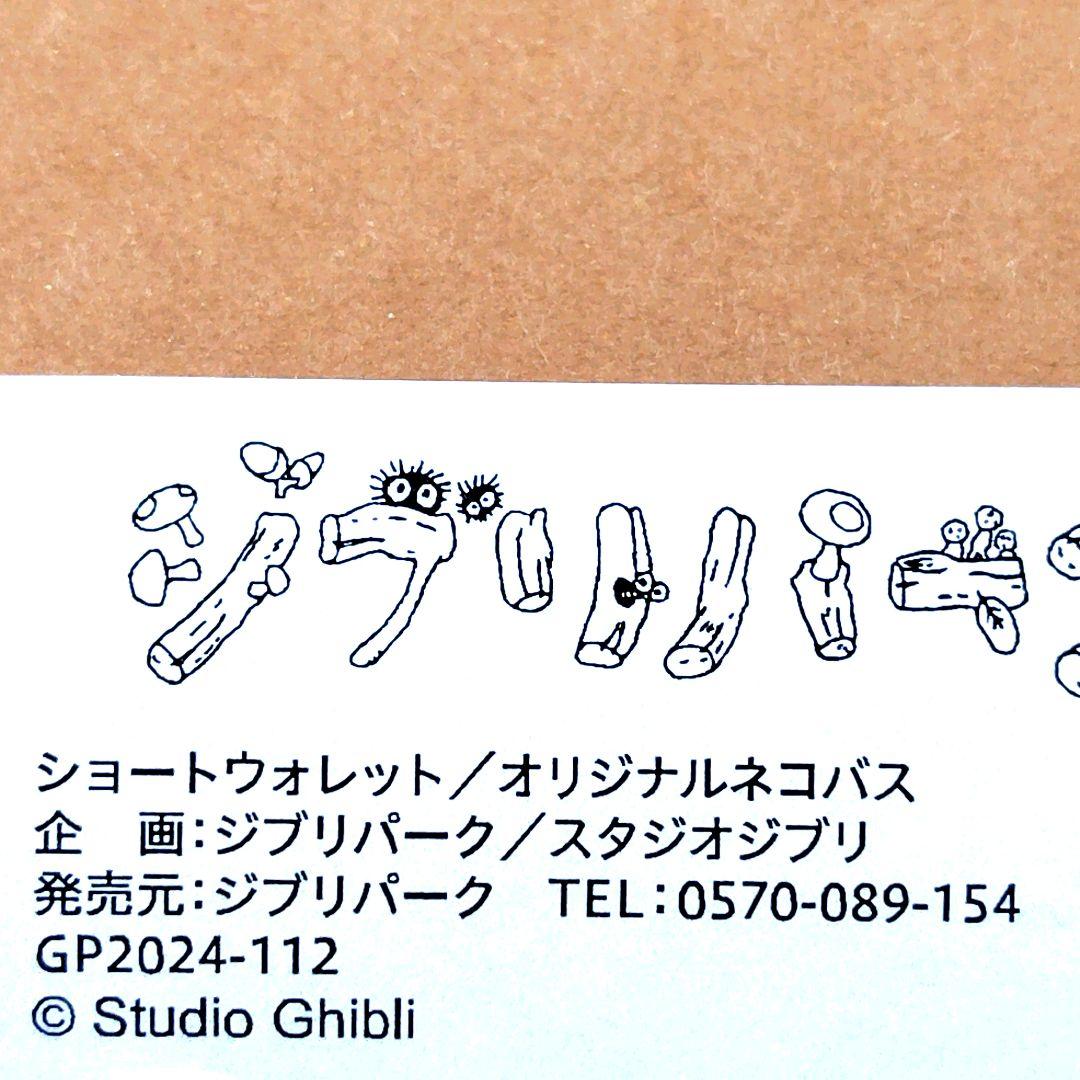 ジブリパーク
ショートウォレット／オリジナルネコバス
企　画：ジブリパーク／スタジオジブリ
発売元：ジブリパーク　TEL：0570-089-154
GP2024-112
© Studio Ghibli